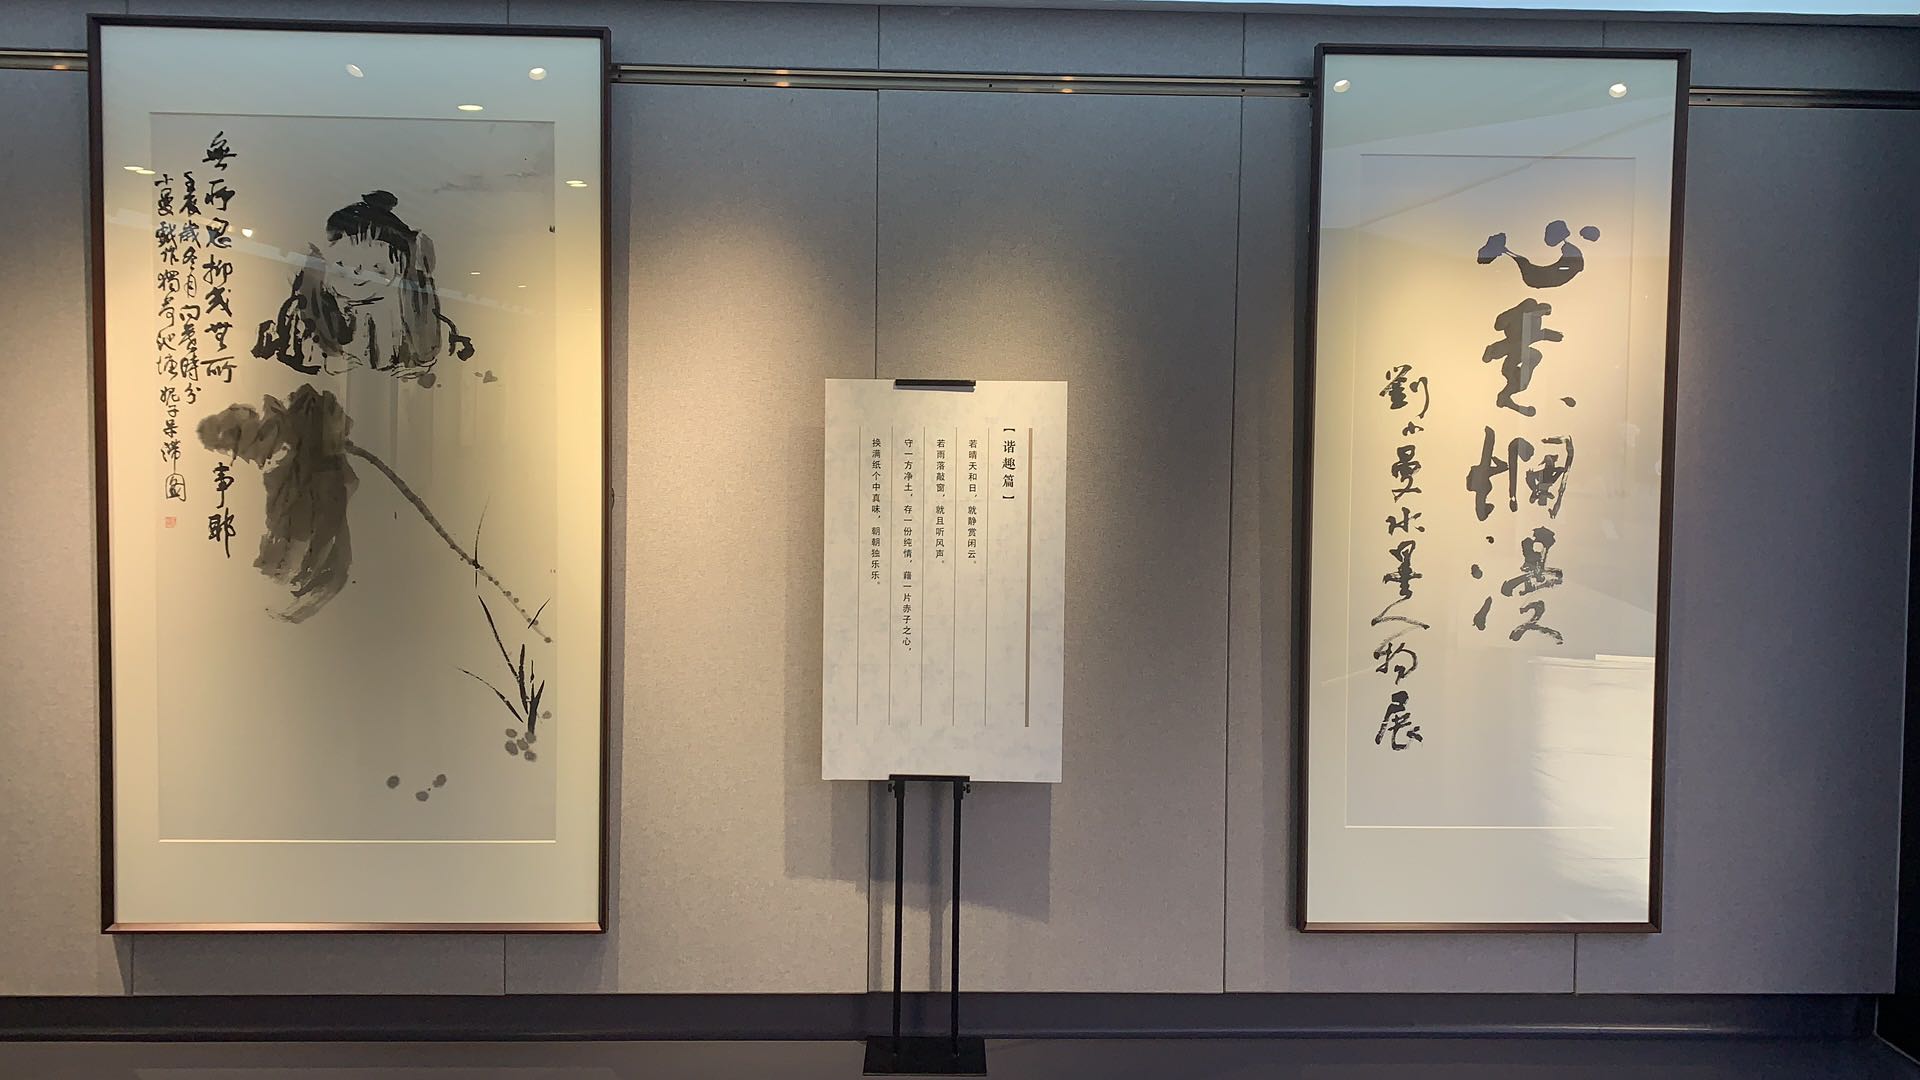 心意爛漫
劉小曼水墨人物展
【谐趣篇】
若晴天和日，就静赏闲云。
若雨落敲窗，就且听风声。
守一方净土，存一份纯情，藉一片赤子之心，
换满纸个中真味，朝朝独乐乐。
無所思抑或無所事耶
壬辰歲冬月向暮時分
小曼戲作獨奇池塘妮子呆滯圖